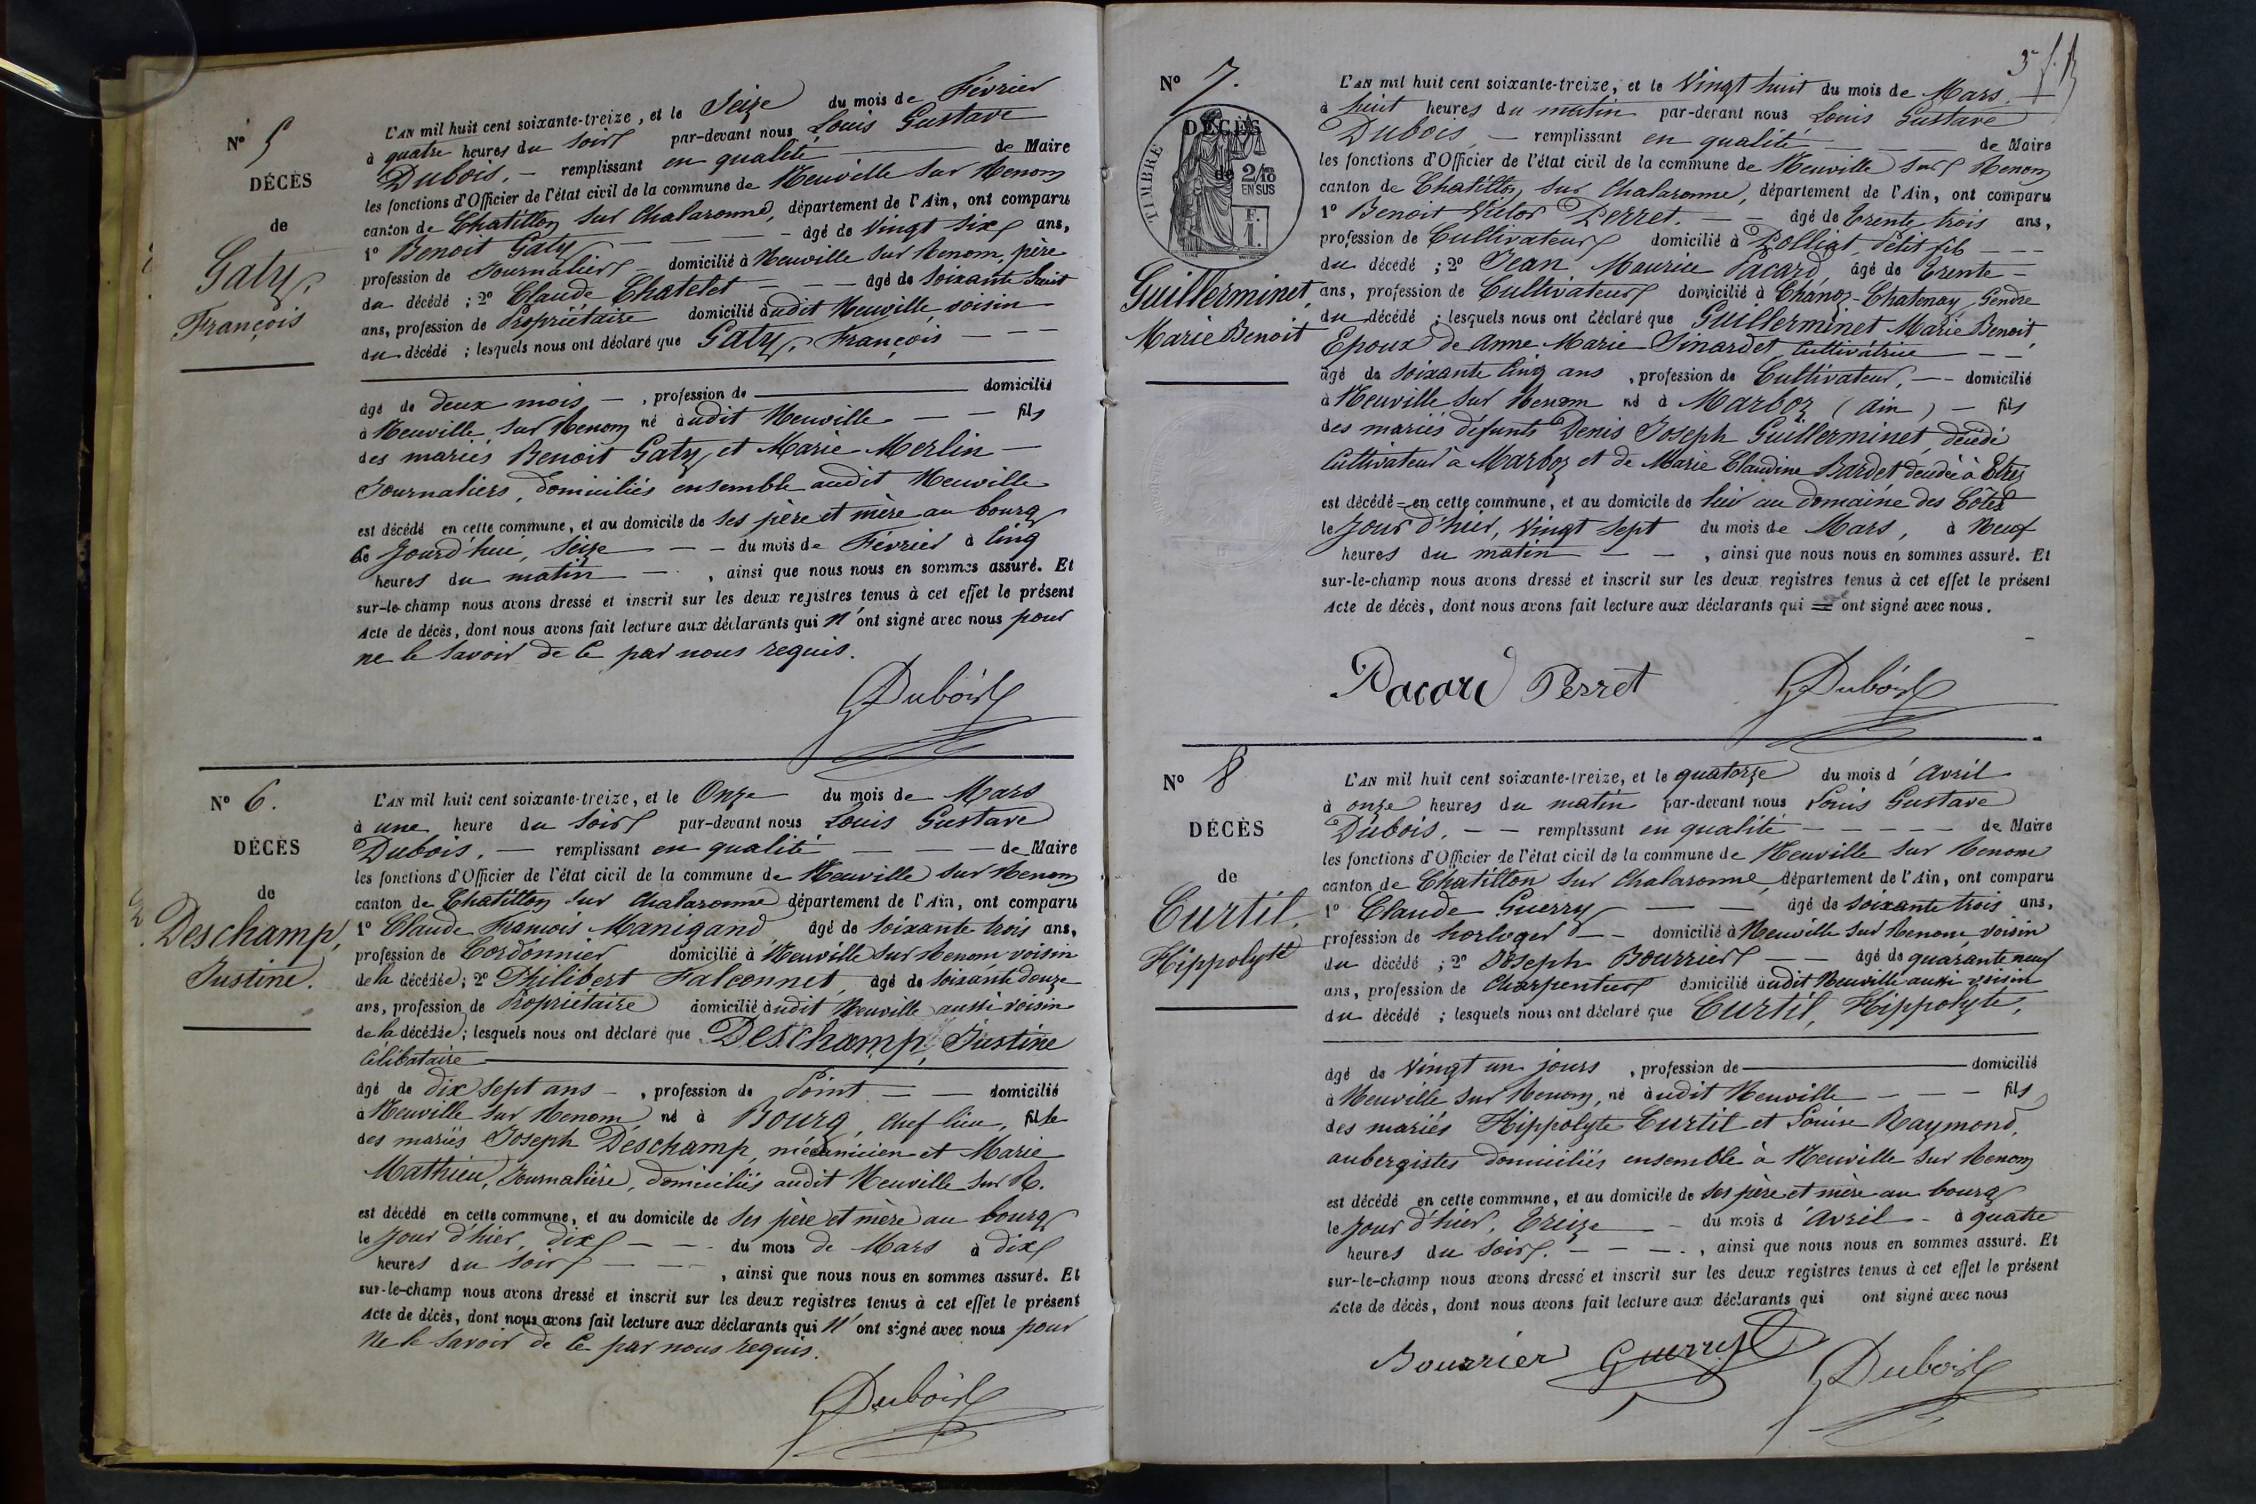 N° 5
DÉCÈS
de
Gaty,
François
L'AN mil huit cent soixante-treize, et le Seize du mois de Février
à quatre heures du soir par-devant nous Louis Gustave
Dubois. — remplissant en qualité — de Maire
les fonctions d'Officier de l'état civil de la commune de Neuville sur Renom
canton de Chatillon sur Chalaronne, département de l'Ain, ont comparu
1° Benoit Gaty — — âgé de Vingt six ans,
profession de Journalier — domicilié à Neuville sur Renom, père
du décédé ; 2° Claude Chatelet — — âgé de soixante huit
ans, profession de Propriétaire domicilié audit Neuville, voisin
du décédé ; lesquels nous ont déclaré que Gaty, François — —
âgé de deux mois — , profession de — domicilié
à Neuville sur Renom né audit Neuville — — fils
des mariés Benoit Gaty et Marie Merlin —
Journaliers, domiciliés ensemble audit Neuville
est décédé en cette commune, et au domicile de ses père et mère au bourg
ce jourd'hui, seize — — du mois de Février à cinq
heures du matin — , ainsi que nous nous en sommes assuré. Et
sur-le-champ nous avons dressé et inscrit sur les deux registres tenus à cet effet le présent
Acte de décès, dont nous avons fait lecture aux déclarants qui n'ont signé avec nous pour
ne le savoir de ce par nous requis.
GDubois
N° 6.
DÉCÈS
de
Deschamp,
Justine.
L'AN mil huit cent soixante-treize, et le Onze du mois de Mars
à une heure du soir par-devant nous Louis Gustave
Dubois. — remplissant en qualité — — — de Maire
les fonctions d'Officier de l'état civil de la commune de Neuville sur Renom
canton de Chatillon sur Chalaronne département de l'Ain, ont comparu
1° Claude François Manigand âgé de soixante trois ans,
profession de Cordonnier domicilié à Neuville sur Renom voisin
de la décédée; 2° Philibert Falconnet, âgé de soixante douze
ans, profession de Propriétaire domicilié audit Neuville aussi voisin
de la décédée; lesquels nous ont déclaré que Deschamp, Justine
Célibataire —
âgé de dix sept ans — , profession de Point — — domicilié
à Neuville sur Renom, né à Bourg, chef lieu, fille
des mariés Joseph Deschamp, mécanicien et Marie
Mathieu, Journalière, domiciliés audit Neuville sur R.
est décédé en cette commune, et au domicile de ses père et mère au bourg
le jour d'hier, dix — — du mois de Mars à dix
heures du soir — — , ainsi que nous nous en sommes assuré. Et
sur-le-champ nous avons dressé et inscrit sur les deux registres tenus à cet effet le présent
Acte de décès, dont nous avons fait lecture aux déclarants qui n'ont signé avec nous pour
Ne le savoir de ce par nous requis.
GDubois
3e
N° 7.
DÉCÈS
de
TIMBRE
2/10
EN SUS
F.
I.
Guillerminet,
Marie Benoit
L'AN mil huit cent soixante-treize, et le Vingt huit du mois de Mars. —
à huit heures du matin par-devant nous Louis Gustave
Dubois, — remplissant en qualité — — — de Maire
les fonctions d'Officier de l'état civil de la commune de Neuville sur Renom
canton de Chatillon sur Chalaronne, département de l'Ain, ont comparu
1° Benoit Victor Perret. — — âgé de Trente trois ans,
profession de Cultivateur domicilié à Polliat, Petit fils — —
du décédé ; 2° Jean Maurice Pacard, âgé de Trente —
ans, profession de Cultivateur domicilié à Chanoz-Chatenay, Gendre
du décédé ; lesquels nous ont déclaré que Guillerminet Marie Benoit,
Epoux de Anne Marie Sinardet, Cultivatrice — —
âgé de soixante cinq ans , profession de Cultivateur, — — domicilié
à Neuville sur Renom né à Marboz (Ain) — fils
des mariés défunts Denis Joseph Guillerminet, décédé
Cultivateur à Marboz et de Marie Claudine Bardet, décédée à Etrez
est décédé en cette commune, et au domicile de lui au domaine des Côtes
le jour d'hier, Vingt sept du mois de Mars, à Neuf
heures du matin — — , ainsi que nous nous en sommes assuré. Et
sur-le-champ nous avons dressé et inscrit sur les deux registres tenus à cet effet le présent
Acte de décès, dont nous avons fait lecture aux déclarants qui ont signé avec nous.
Pacard Perret GDubois
N° 8
DÉCÈS
de
Curtil,
Hippolyte
L'AN mil huit cent soixante-treize, et le quatorze du mois d'Avril
à onze heures du matin par-devant nous Louis Gustave
Dubois. — — remplissant en qualité — — — — de Maire
les fonctions d'Officier de l'état civil de la commune de Neuville sur Renom
canton de Chatillon sur Chalaronne, département de l'Ain, ont comparu
1° Claude Guerry — — âgé de soixante trois ans,
profession de horloger — — domicilié à Neuville sur Renom, voisin
du décédé ; 2° Joseph Bourrier — — âgé de quarante neuf
ans, profession de Charpentier domicilié audit Neuville aussi voisin
du décédé ; lesquels nous ont déclaré que Curtil, Hippolyte,
âgé de Vingt un jours , profession de — domicilié
à Neuville sur Renom, né audit Neuville — — — fils
des mariés Hippolyte Curtil et Louise Raymond,
aubergistes domiciliés ensemble à Neuville sur Renom
est décédé en cette commune, et au domicile de ses père et mère au bourg
le jour d'hier, Treize — du mois d'Avril — à quatre
heures du soir. — — — , ainsi que nous nous en sommes assuré. Et
sur-le-champ nous avons dressé et inscrit sur les deux registres tenus à cet effet le présent
Acte de décès, dont nous avons fait lecture aux déclarants qui ont signé avec nous
Bourrier Guerry GDubois